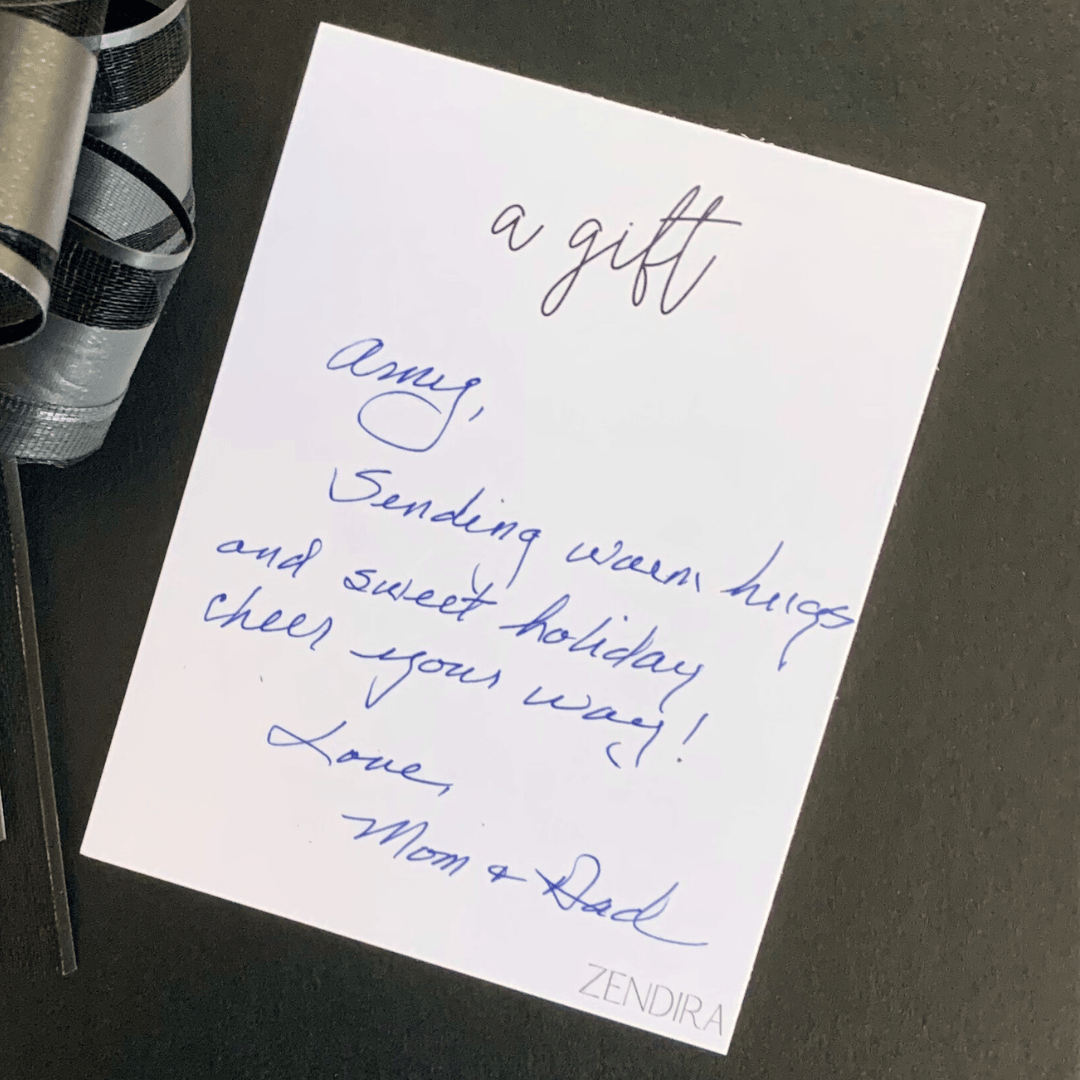 a gift
Amy,
Sending warm hugs
and sweet holiday
cheer your way!
Love,
Mom & Dad
ZENDIRA